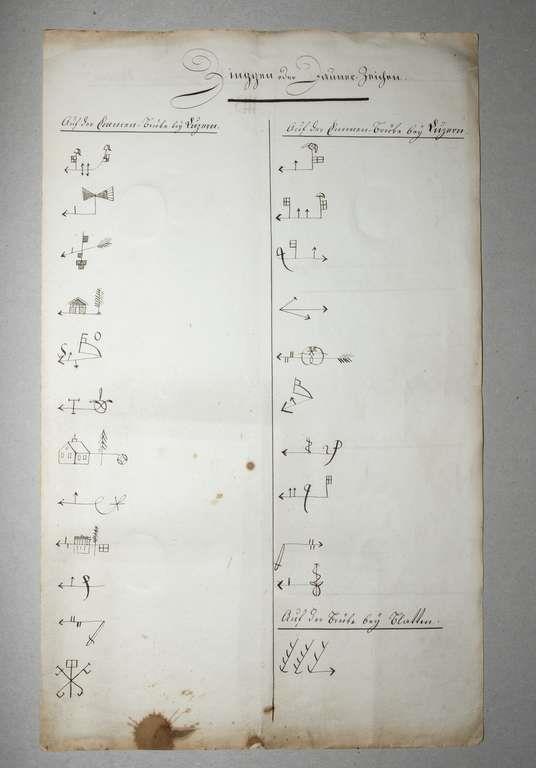 Zinggen oder Jauner-Zeichen.
Auf der Emmen-Brüke bey Luzern.
Auf der Emmen-Brüke bey Luzern.
Auf der Brüke bey Blatten.